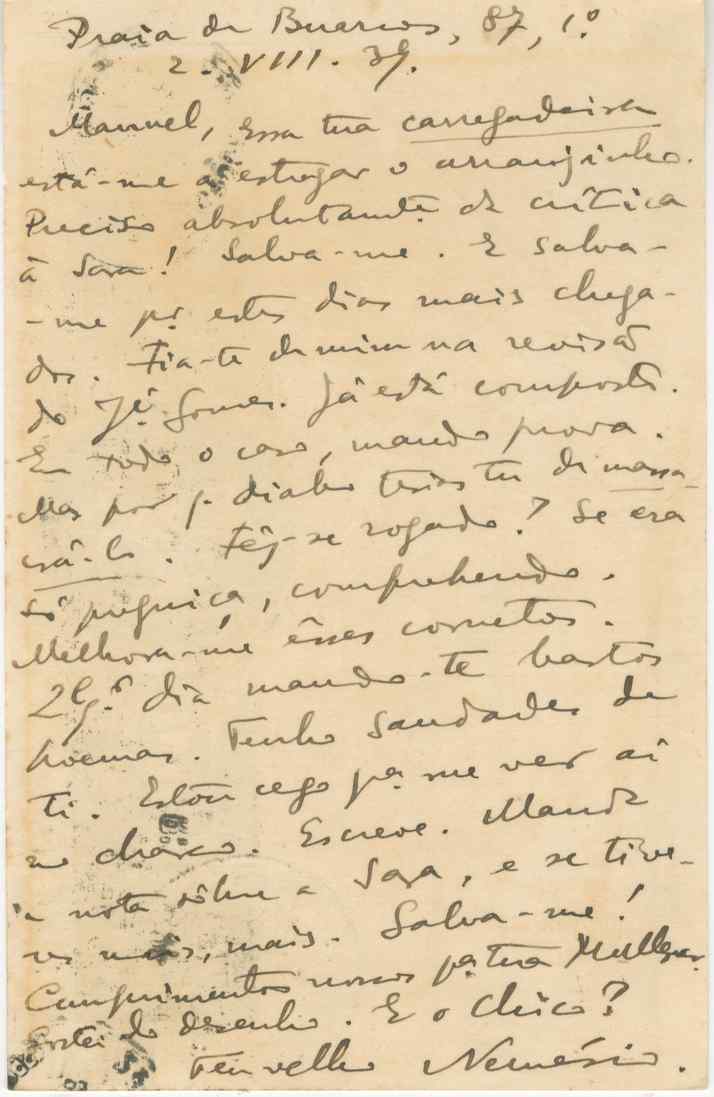 Praia de Buarcos, 87, 1.º
2. VIII. 39.
Manuel, Essa tua carregadeira
está-me a estragar o arranjinho.
Preciso absolutamte de crítica
à Sara! Salva-me. E salva-
-me pr estes dias mais chega-
dos. Fia-te de mim na revisão
do Jé Gomes. Já está composto.
Em todo o caso, mando prova.
Mas por q. diabo teses tu de massa-
crá-lo. Fêz-se rogado? Se era
só preguiça, comprehendo.
Melhora-me êsses cornetos.
2lqr dia mando-te bastos
poemas. Tenho saudades de
ti. Estou cego pa me ver aí
no charco. Escreve. Mande
a nota sôbre a Sara, e se tive-
res mais, mais. Salva-me!
Cumprimentos nossos pa tua Mulher.
Gostei do desenho. E o Chico?
Teu velho Nemésio.